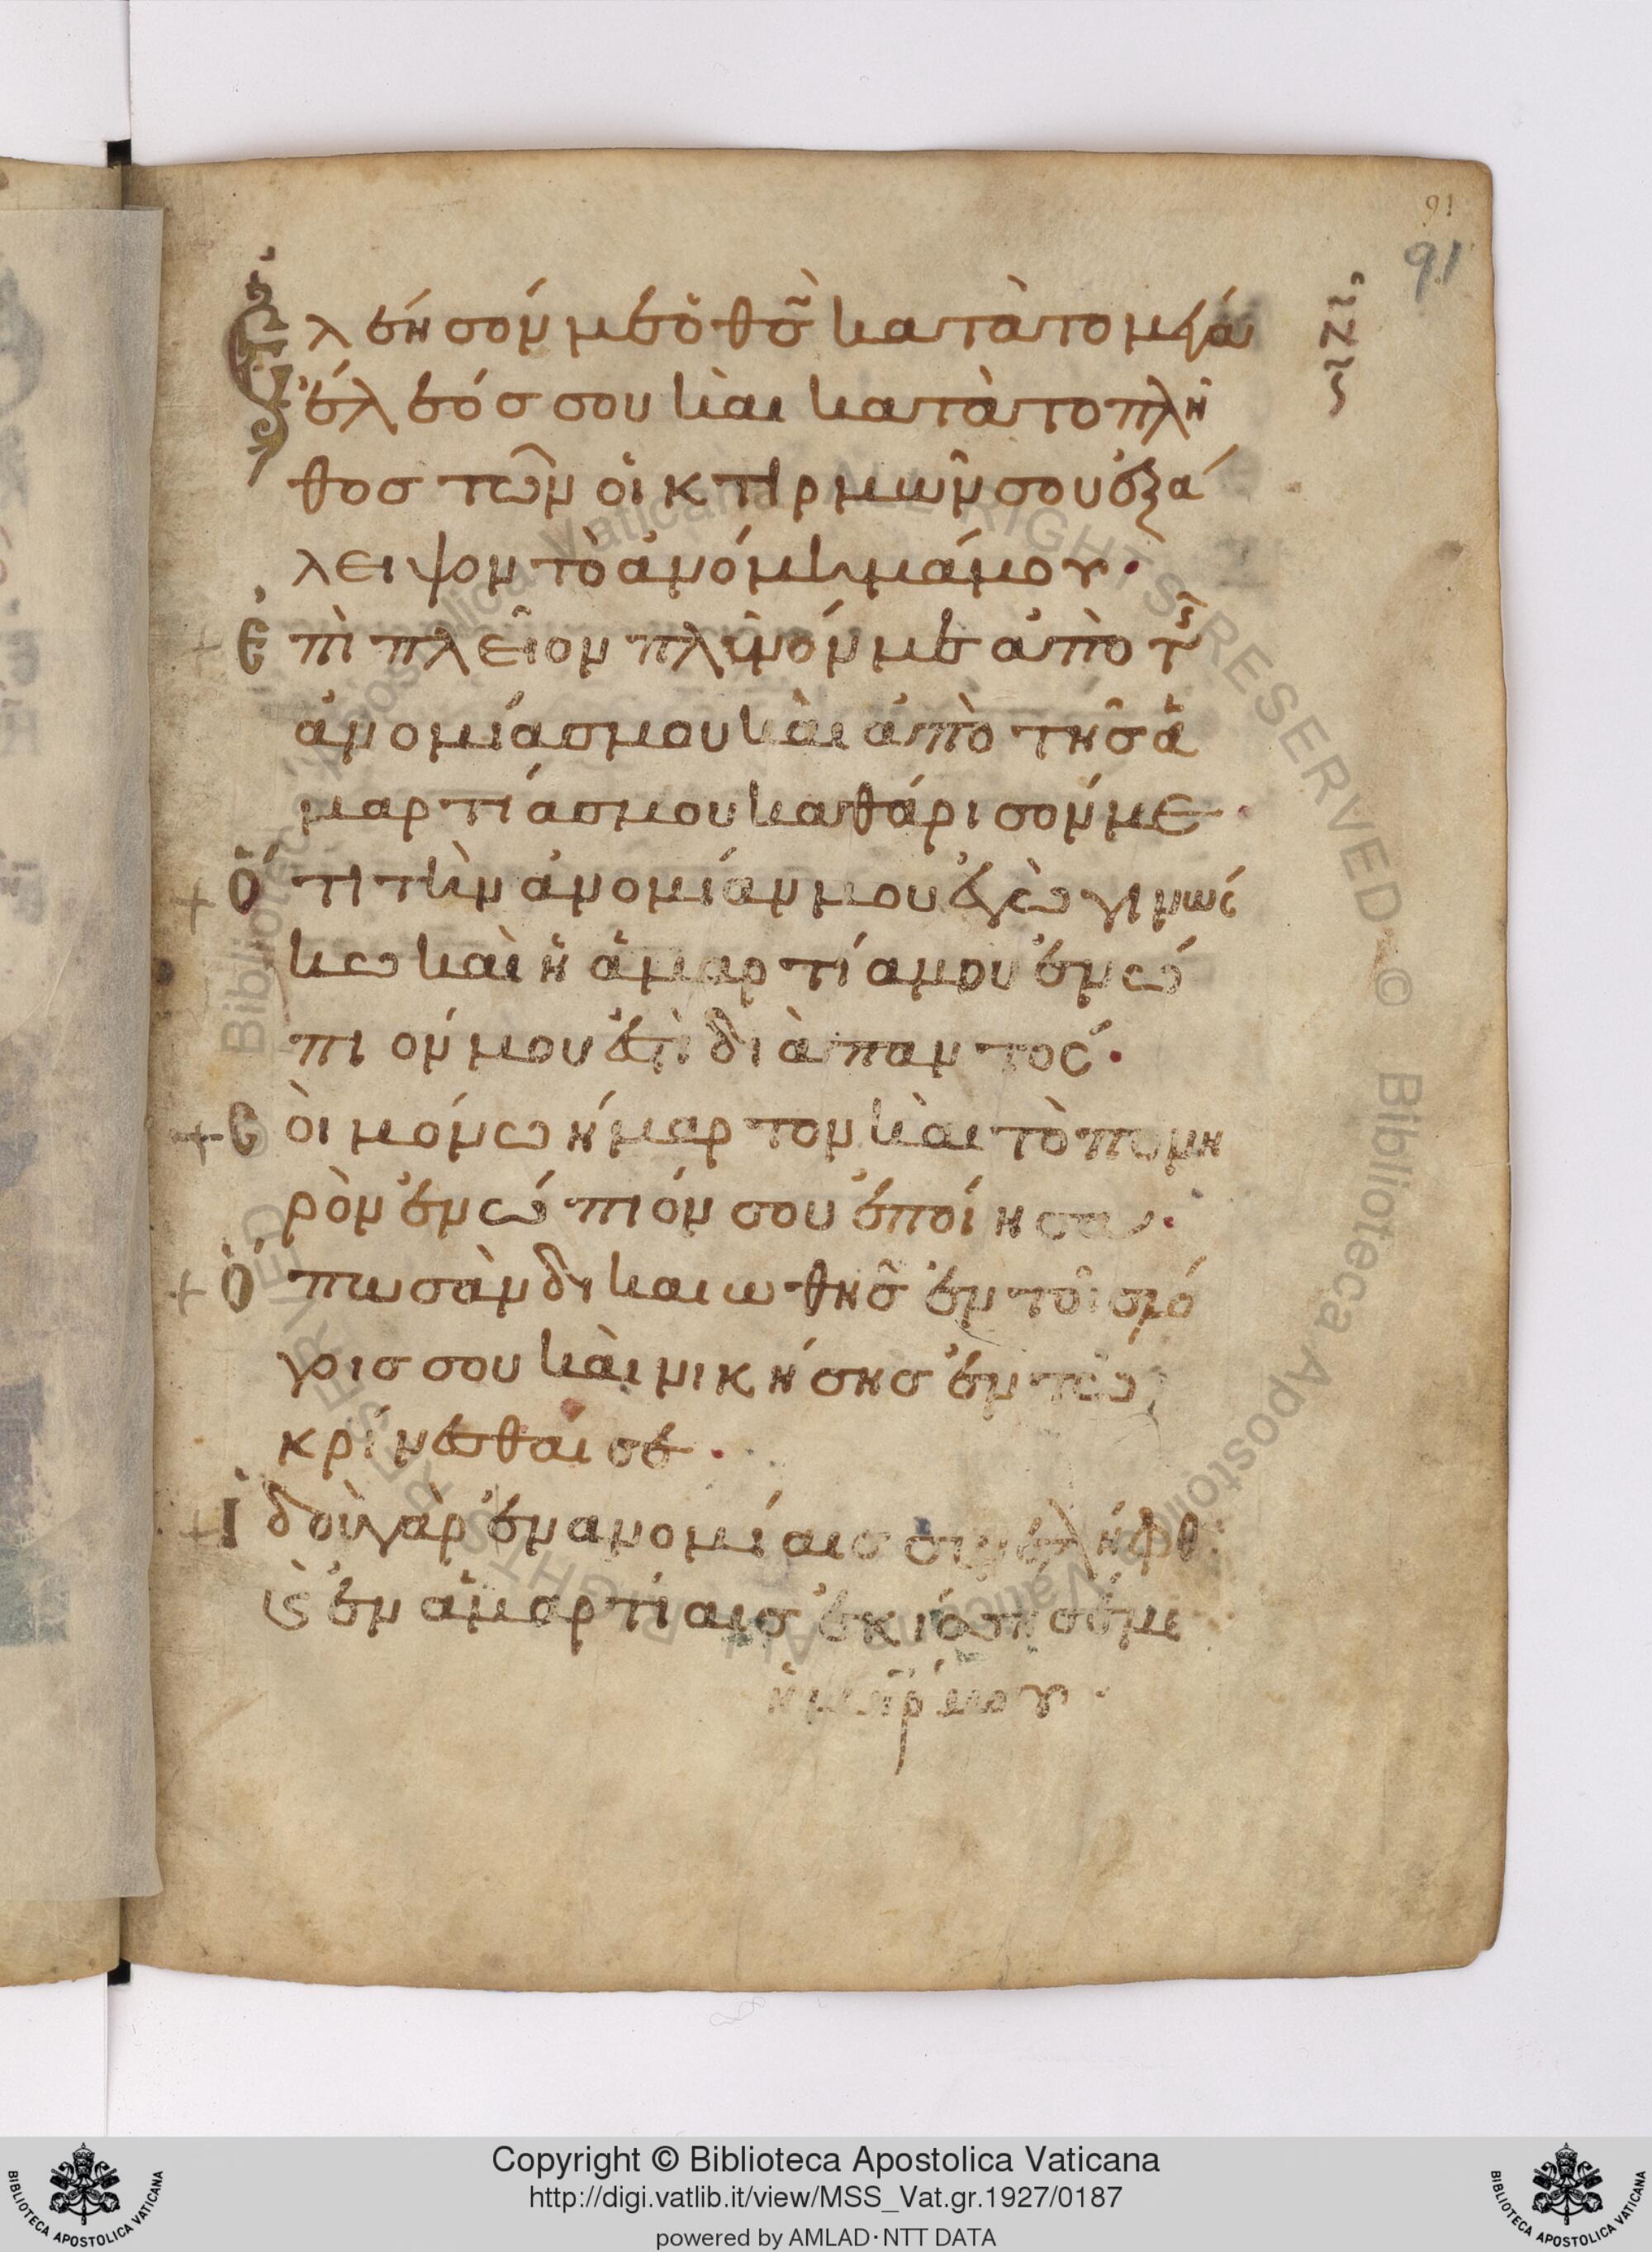 91
91
Ἐλεήσόν με ὁ θσ̃ κατὰ το μέγα
ἔλεόσ σου κὰι κατὰ το πλῆ
θοσ τῶν οἰκτιρμῶν σου ἐξά
λειψον τὸ ἀνόμημά μου·
Ἐπὶ πλεῖον πλῦνόν με ἀπὸ τῆς
ἀνομίασ μου κὰι ἀπὸ τῆσ ἁ
μαρτίασ μου καθάρισόν με·
Ὅτι τὴν ἀνομίαν μου ἐγὼ γινώσ
κω καὶ ἡ ἁμαρτία μου ἐνώ
πιόν μου ἐστὶ διὰ παντοσ·
Σὸι μόνω ἥμαρτον κὰι τὸ πονη
ρὸν ἐνώπιόν σου ἐποίησα·
Ὅπωσ ὰν δικαιωθῆσ ἐν τοῖσ λό
γοισ σου κὰι νικήσησ ἐν τῶ
κρίνεσθαί σε·
Ἰδοὺ γὰρ ἐν ανομίαισ συνελήφθ
ϛ ἐν ἁμαρτίαισ ἐκίσσησέ με
ἡ μηρ μου·
Copyright © Biblioteca Apostolica Vaticana
http://digi.vatlib.it/view/MSS_Vat.gr.1927/0187
powered by AMLAD·NTT DATA
BIBLIOTECA APOSTOLICA VATICANA
BIBLIOTECA APOSTOLICA VATICANA
Biblioteca Apostolica Vaticana ALL RIGHTS RESERVED © Biblioteca Apostolica Vaticana ALL RIGHTS RESERVED